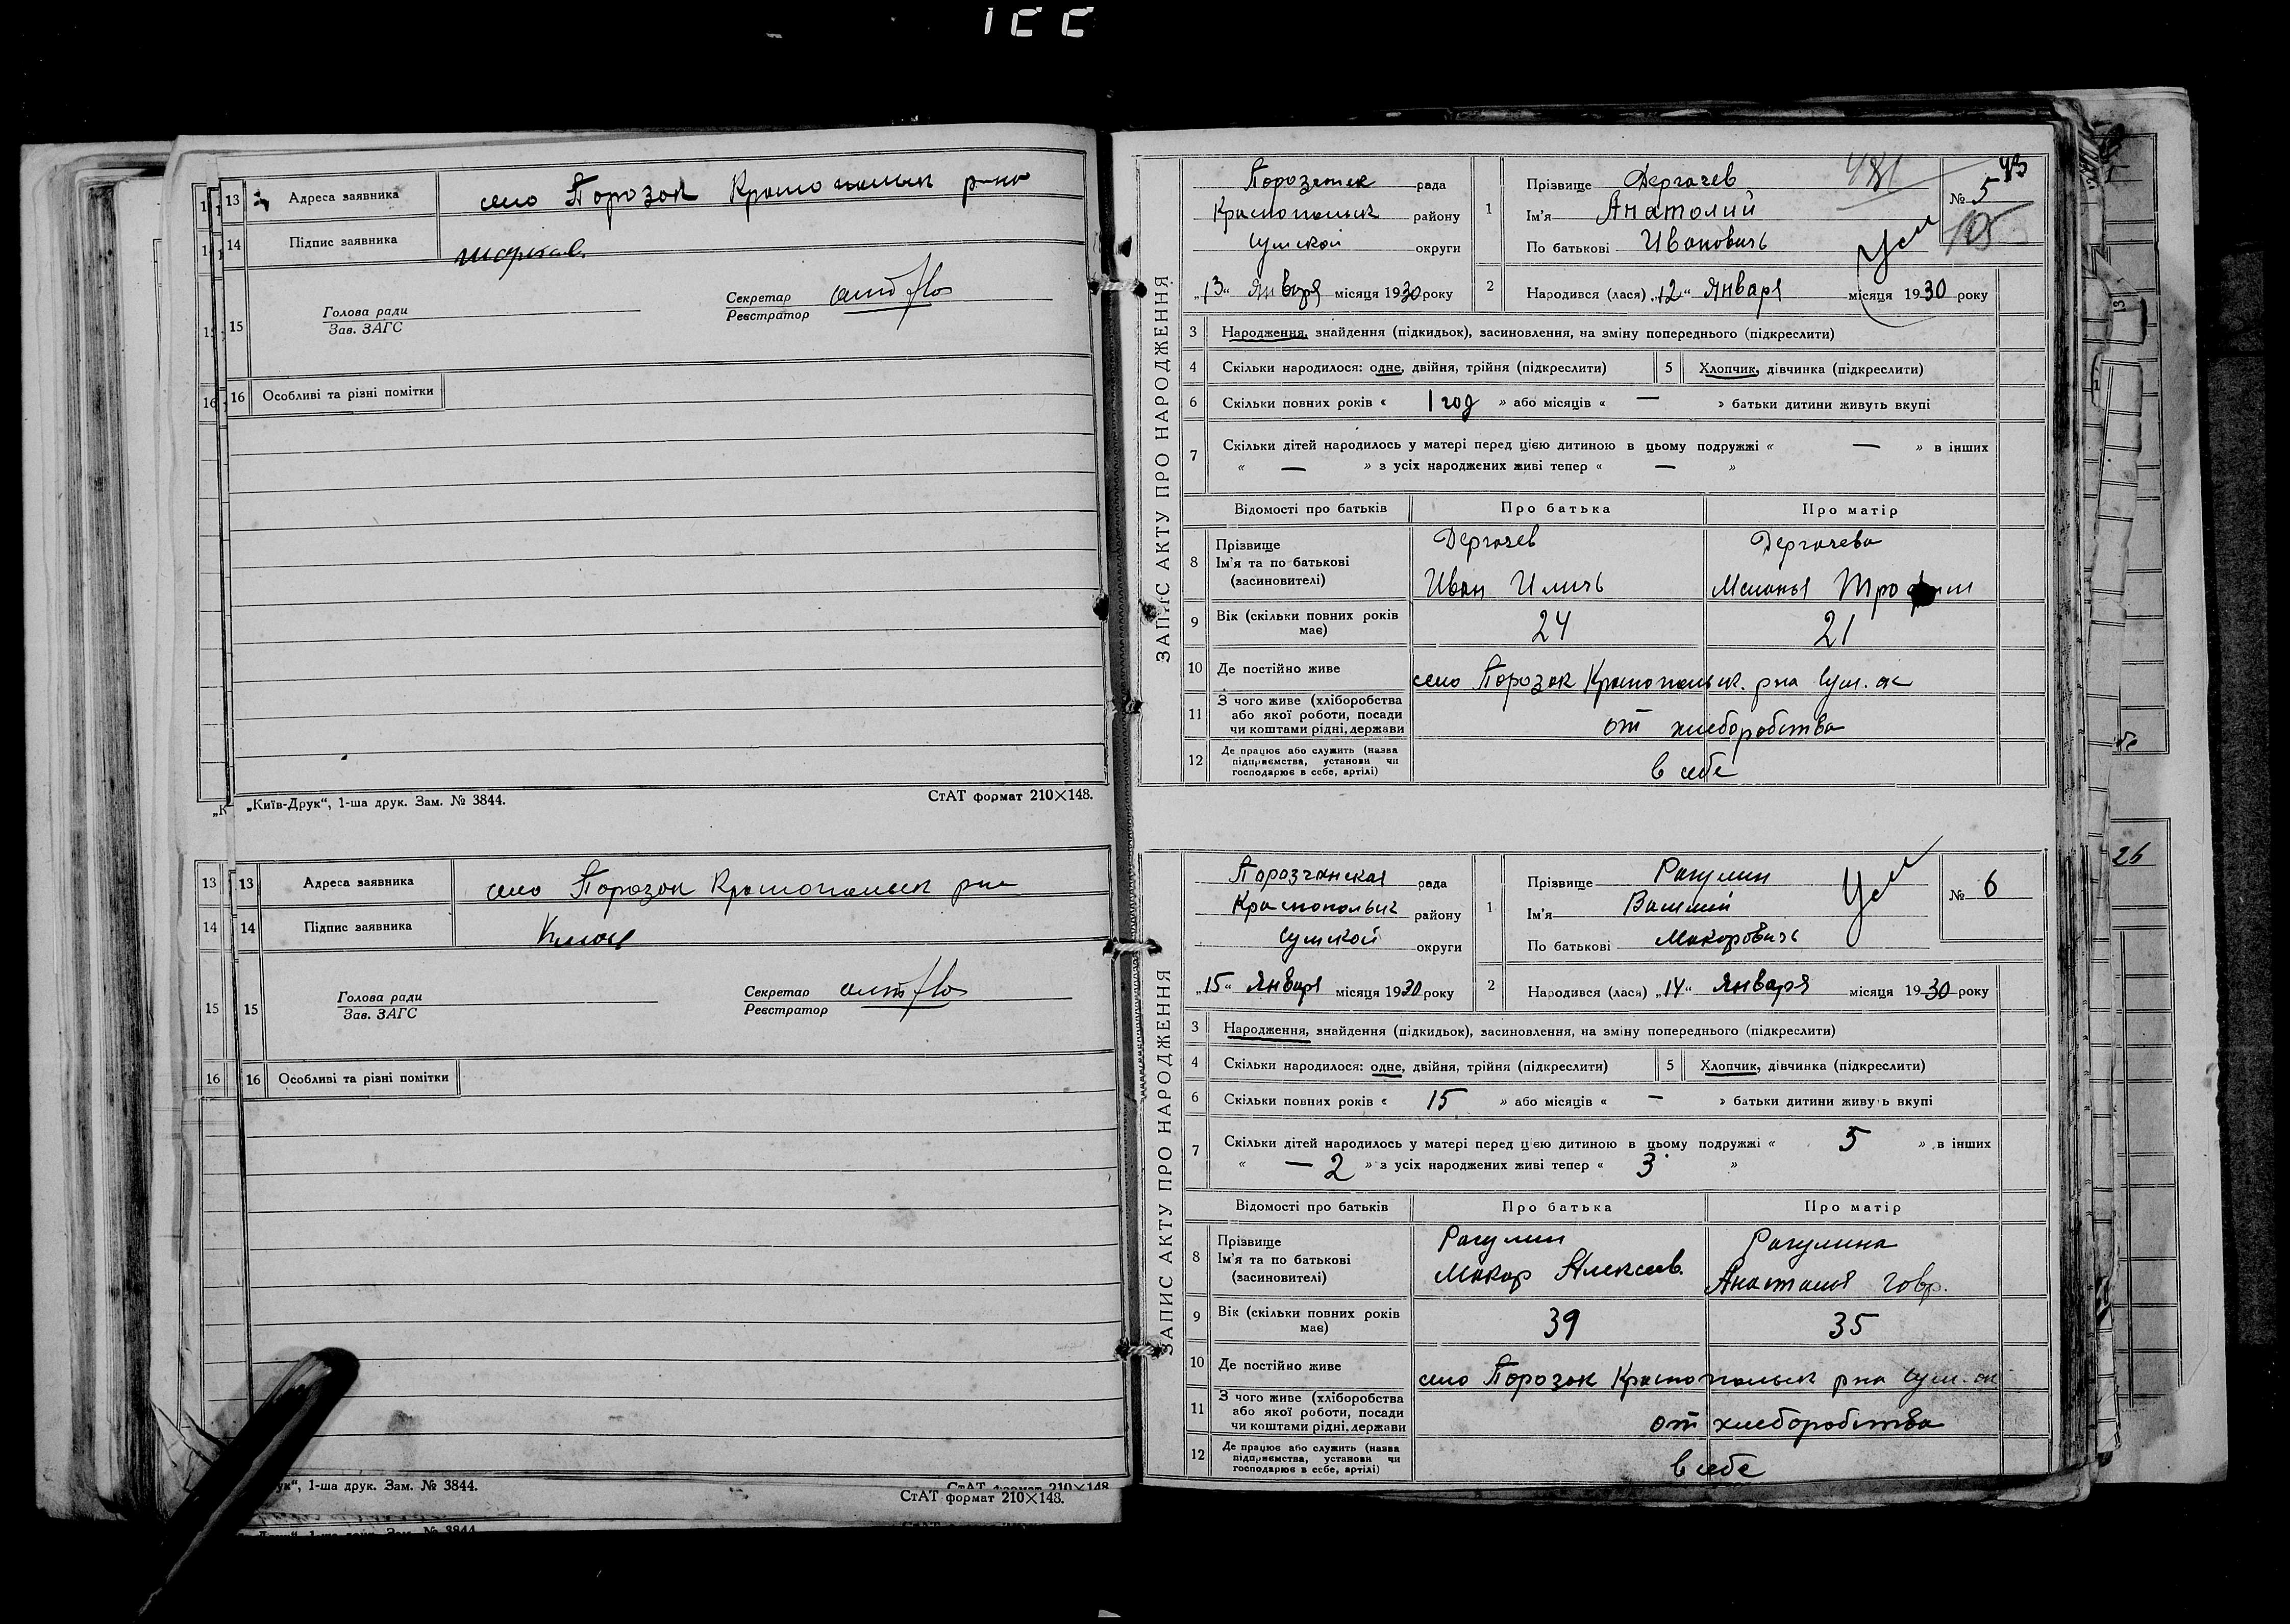 13 Адреса заявника село Порозок Краснопольск р-на
14 Підпис заявника
15 Голова ради
Зав. ЗАГС
Секретар
Реєстратор
16 Особливі та різні помітки
„Київ-Друк“, 1-ша друк. Зам. № 3844.
СтАТ формат 210×148.
13 13 Адреса заявника село Порозок Краснопольск рна
14 14 Підпис заявника
15 15 Голова ради
Зав. ЗАГС
Секретар
Реєстратор
16 16 Особливі та різні помітки
1-ша друк. Зам. № 3844.
СтАТ формат 210×148.
ЗАПИС АКТУ ПРО НАРОДЖЕННЯ
рада
Краснопольск району
Сумской округи
„13“ Января місяця 1930 року
1 Прізвище Дергачев
Ім'я Анатолий
По батькові Иванович
№ 5
43
105
2 Народився (лася) „12“ Января місяця 1930 року
3 Народження, знайдення (підкидьок), засиновлення, на зміну попереднього (підкреслити)
4 Скільки народилося: одне, двійня, трійня (підкреслити) 5 Хлопчик, дівчинка (підкреслити)
6 Скільки повних років « 1 год » або місяців « — » батьки дитини живуть вкупі
7 Скільки дітей народилось у матері перед цією дитиною в цьому подружжі « — » в інших
« — » з усіх народжених живі тепер « — »
Відомості про батьків Про батька Про матір
8 Прізвище Дергачев Дергачева
Ім'я та по батькові
(засиновителі) Иван Ильич Меланья Трофим
9 Вік (скільки повних років має) 24 21
10 Де постійно живе село Порозок Краснопольск. рна Сум. ок
11 З чого живе (хліборобства
або якої роботи, посади
чи коштами рідні, держави от хлеборобства
12 Де працює або служить (назва
підприємства, установи чи
господарює в себе, артілі) в себе
ЗАПИС АКТУ ПРО НАРОДЖЕННЯ
Порозчанская рада
Краснопольск району
Сумской округи
„15“ Января місяця 1930 року
1 Прізвище Рагулин
Ім'я Василий
По батькові Макарович
№ 6
2 Народився (лася) „14“ Января місяця 1930 року
3 Народження, знайдення (підкидьок), засиновлення, на зміну попереднього (підкреслити)
4 Скільки народилося: одне, двійня, трійня (підкреслити) 5 Хлопчик, дівчинка (підкреслити)
6 Скільки повних років « 15 » або місяців « — » батьки дитини живуть вкупі
7 Скільки дітей народилось у матері перед цією дитиною в цьому подружжі « 5 » в інших
« — 2 » з усіх народжених живі тепер « 3 »
Відомості про батьків Про батька Про матір
8 Прізвище Рагулин Рагулина
Ім'я та по батькові
(засиновителі) Макар Алексеев. Анастасия Гавр.
9 Вік (скільки повних років має) 39 35
10 Де постійно живе село Порозок Краснопольск рна Сум. ок
11 З чого живе (хліборобства
або якої роботи, посади
чи коштами рідні, держави от хлеборобства
12 Де працює або служить (назва
підприємства, установи чи
господарює в себе, артілі) в себе
26